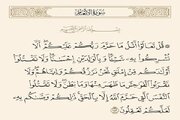 سورة الأنعام
بسم الله الرحمن الرحيم
قُلْ تَعَالَوْا أَتْلُ مَا حَرَّمَ رَبُّكُمْ عَلَيْكُمْ أَلَّا
تُشْرِكُوا بِهِ شَيْئًا وَبِالْوَالِدَيْنِ إِحْسَانًا وَلَا تَقْتُلُوا
أَوْلَادَكُم مِّنْ إِمْلَاقٍ نَّحْنُ نَرْزُقُكُمْ وَإِيَّاهُمْ وَلَا
تَقْرَبُوا الْفَوَاحِشَ مَا ظَهَرَ مِنْهَا وَمَا بَطَنَ وَلَا تَقْتُلُوا
النَّفْسَ الَّتِي حَرَّمَ اللَّهُ إِلَّا بِالْحَقِّ ذَٰلِكُمْ وَصَّاكُم بِهِ
لَعَلَّكُمْ تَعْقِلُونَ